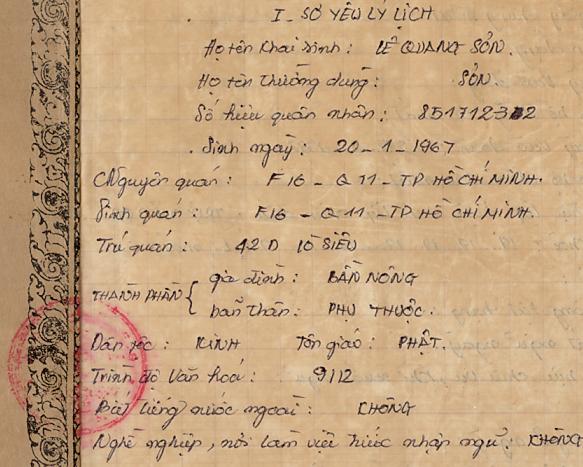 I_ SƠ YẾU LÝ LỊCH
Họ tên khai sinh : LÊ QUANG SƠN.
Họ tên thường dùng : SƠN.
Số hiệu quân nhân : 851712312
Sinh ngày : 20 - 1 - 1967
Nguyên quán : F16 - Q11 - TP HỒ CHÍ MINH.
Sinh quán : F16 - Q11 - TP HỒ CHÍ MINH.
Trú quán : 42D LÒ SIÊU
THÀNH PHẦN { gia đình : BẦN NÔNG
bản thân : PHỤ THUỘC.
Dân tộc : KINH Tôn giáo : PHẬT.
Trình độ Văn hoá : 9/12
Biết tiếng nước ngoài : KHÔNG
Nghề nghiệp, nơi làm việc trước nhập ngũ. KHÔNG